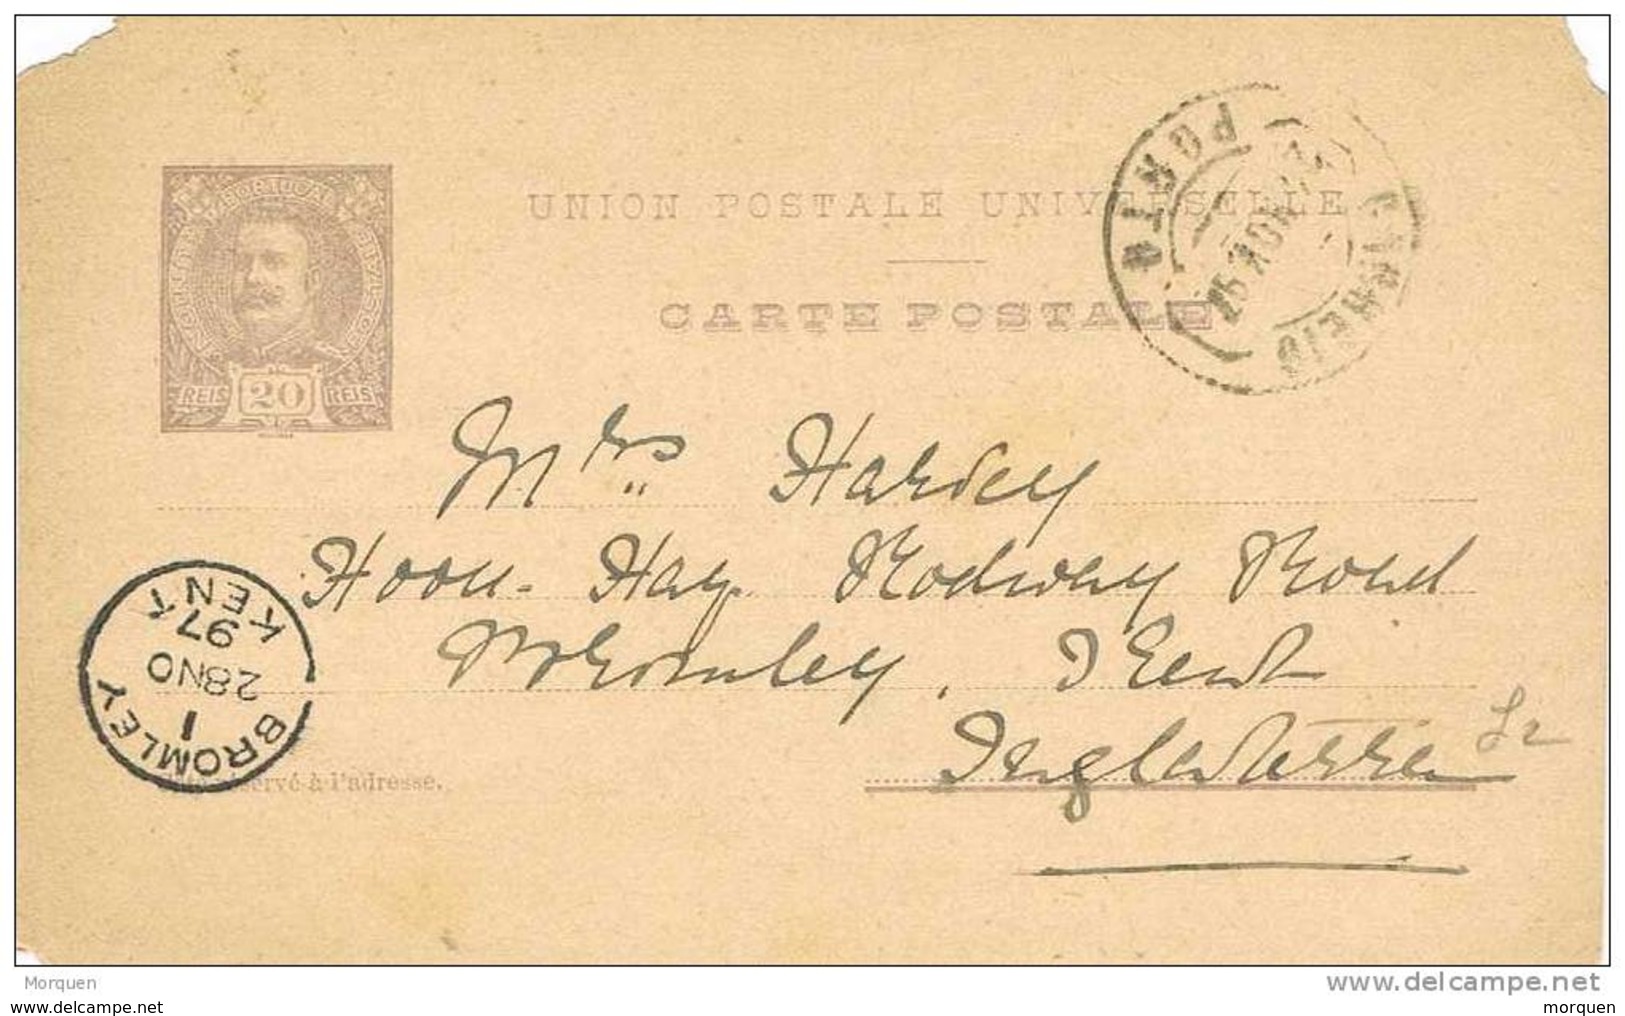 PORTUGAL
REIS 20 REIS
UNION POSTALE UNIVERSELLE
CARTE POSTALE
PORTO
Mrs Harvey
Hoon-Hay Rodway Road
Bromley, Kent
Inglaterra
BROMLEY
1
28 NO
97
KENT
réservé à l'adresse.
Morquen
www.delcampe.net
morquen
morquen